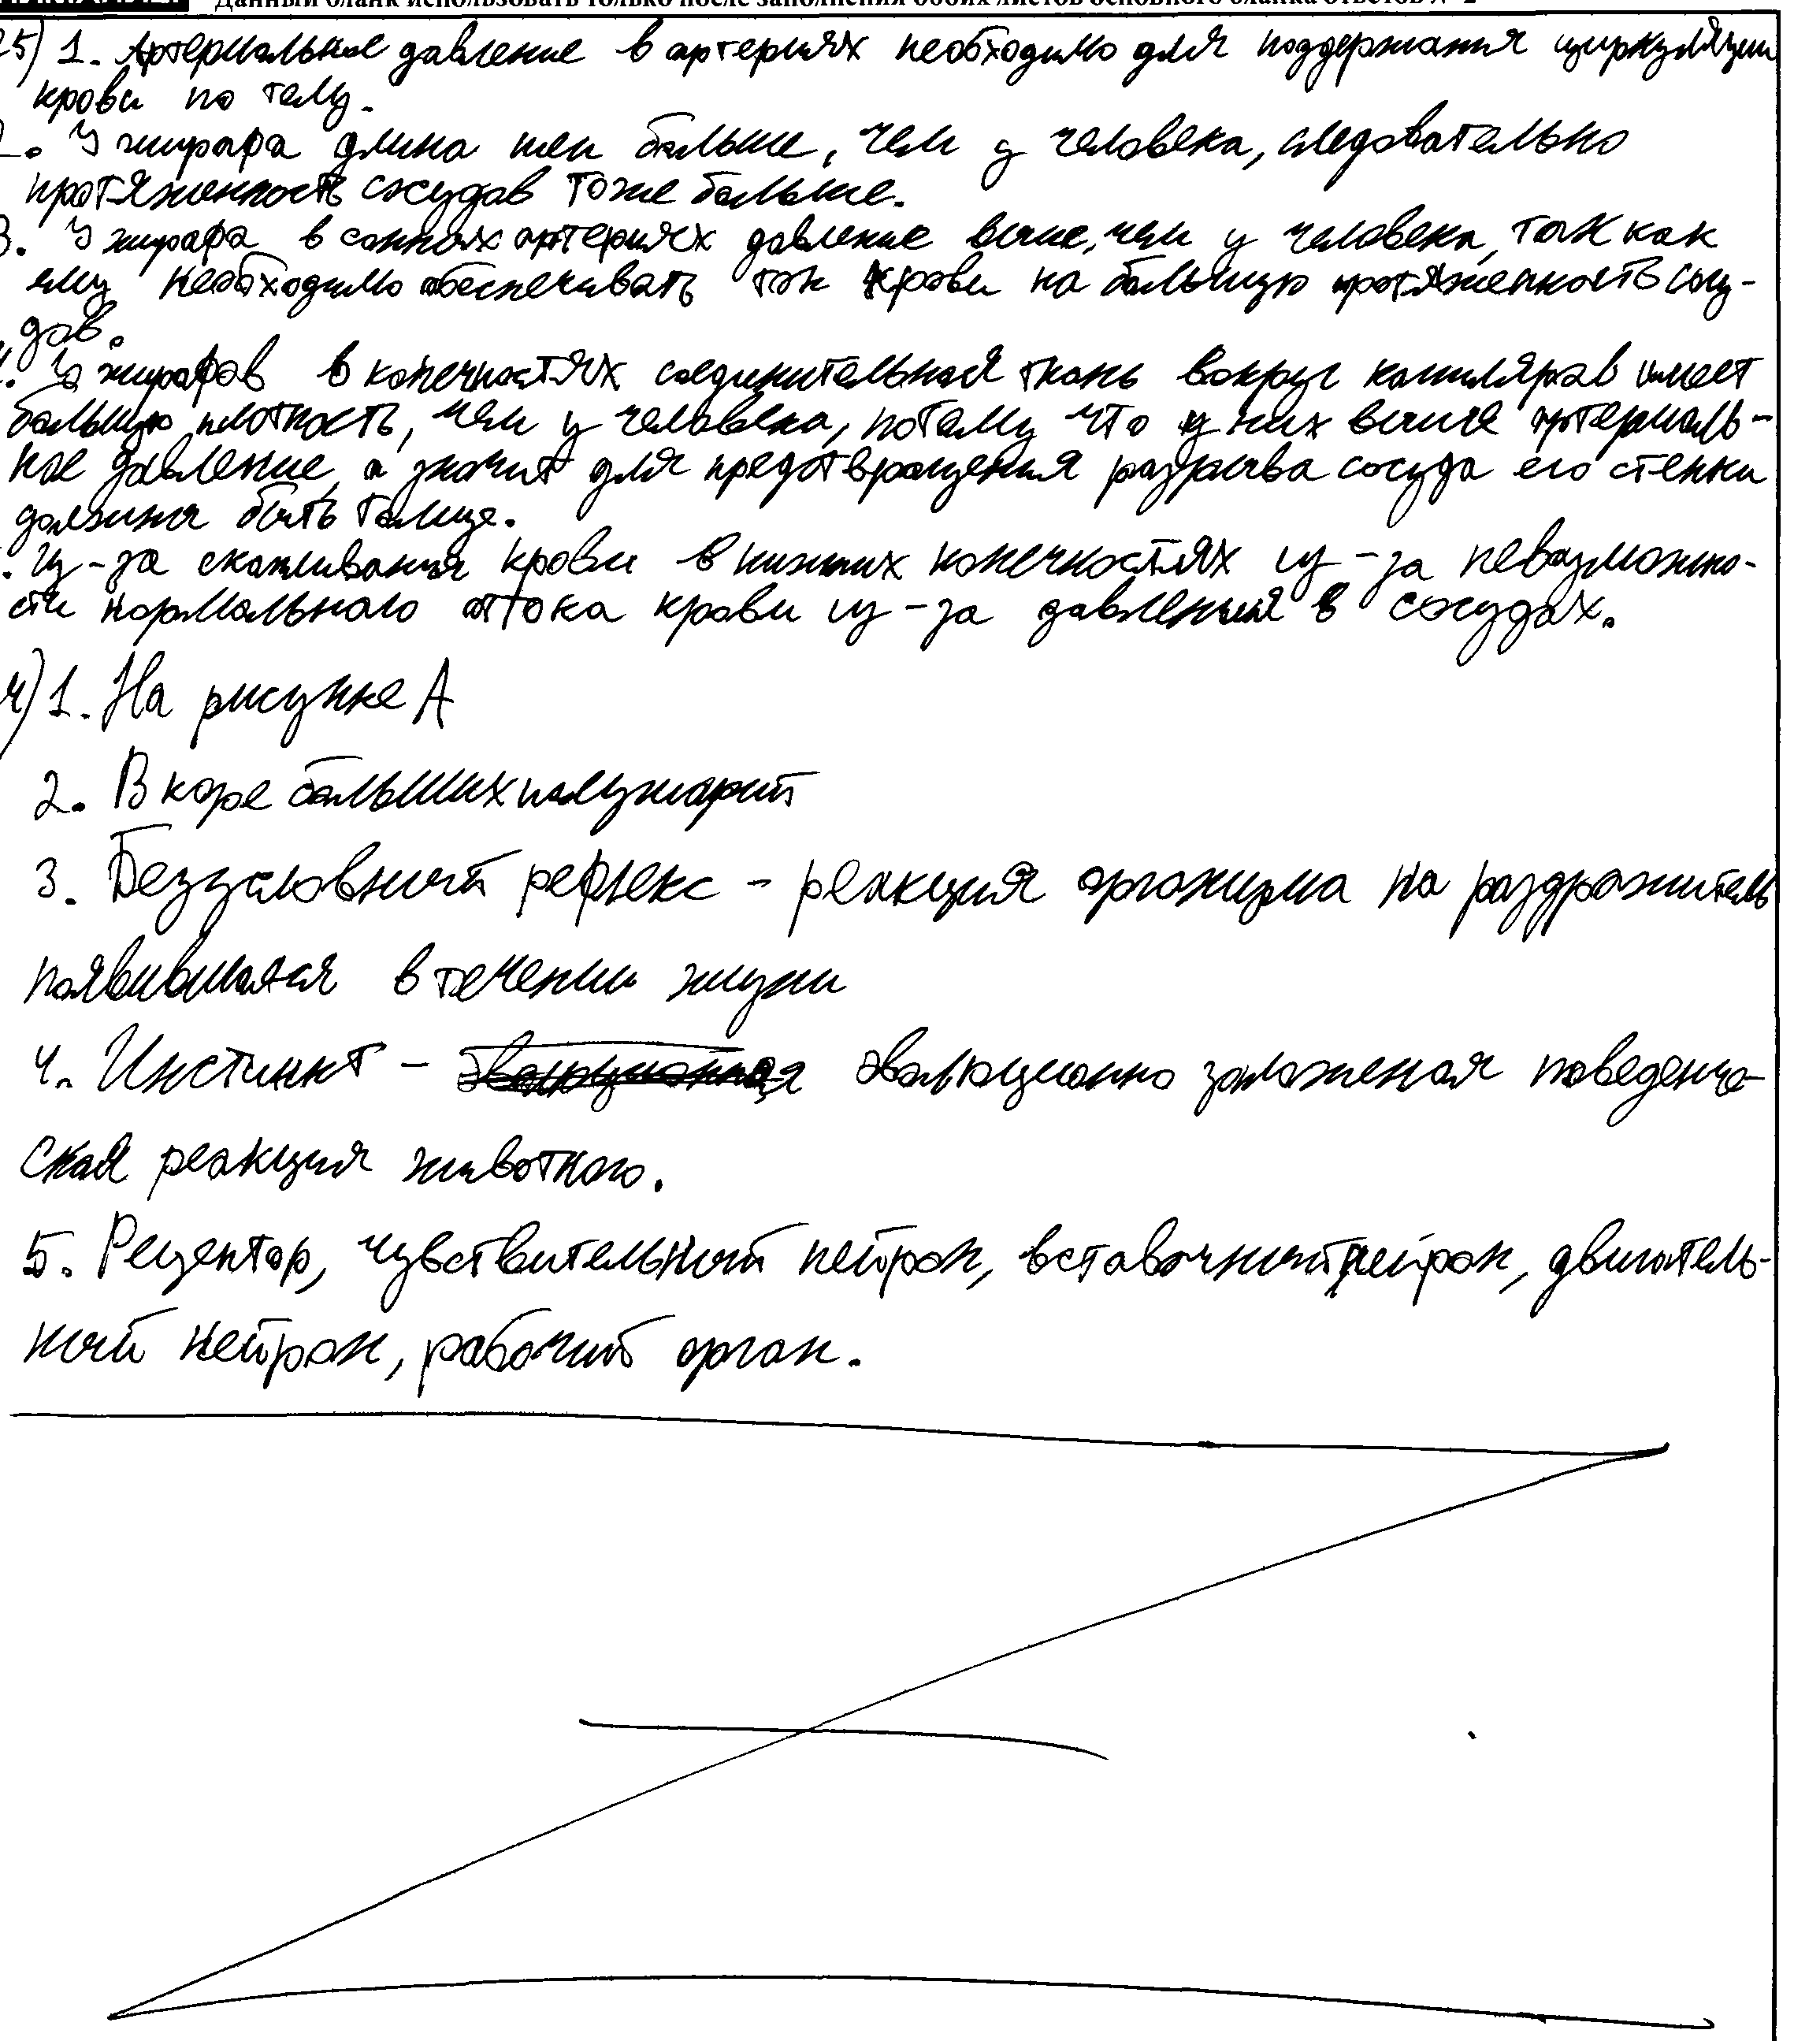 Данный бланк использовать только после заполнения обоих листов основного бланка ответов № 2
25) 1. Артериальное давление в артериях необходимо для поддержания циркуляции
крови по телу.
2. У жирафа длина шеи больше, чем у человека, следовательно
протяженность сосудов тоже больше.
3. У жирафа в сонных артериях давление выше, чем у человека, так как
ему необходимо обеспечивать ток крови на большую протяженность сосу-
дов.
4. У жирафов в конечностях соединительная ткань вокруг капиляров имеет
большую плотность, чем у человека, потому что у них выше артериаль-
ное давление, а значит для предотвращения разрыва сосуда его стенки
должны быть толще.
. Из-за скапливания крови в нижних конечностях из-за невозможно-
сти нормального оттока крови из-за давления в сосудах.
4) 1. На рисунке А
2. В коре больших полушарий
3. Безусловный рефлекс - реакция организма на раздражитель
появившаяся в течении жизни
4. Инстинкт - эволюционно заложеная поведенче-
ская реакция животного.
5. Рецептор, чувствительный нейрон, вставочный нейрон, двигатель-
ный нейрон, рабочий орган.